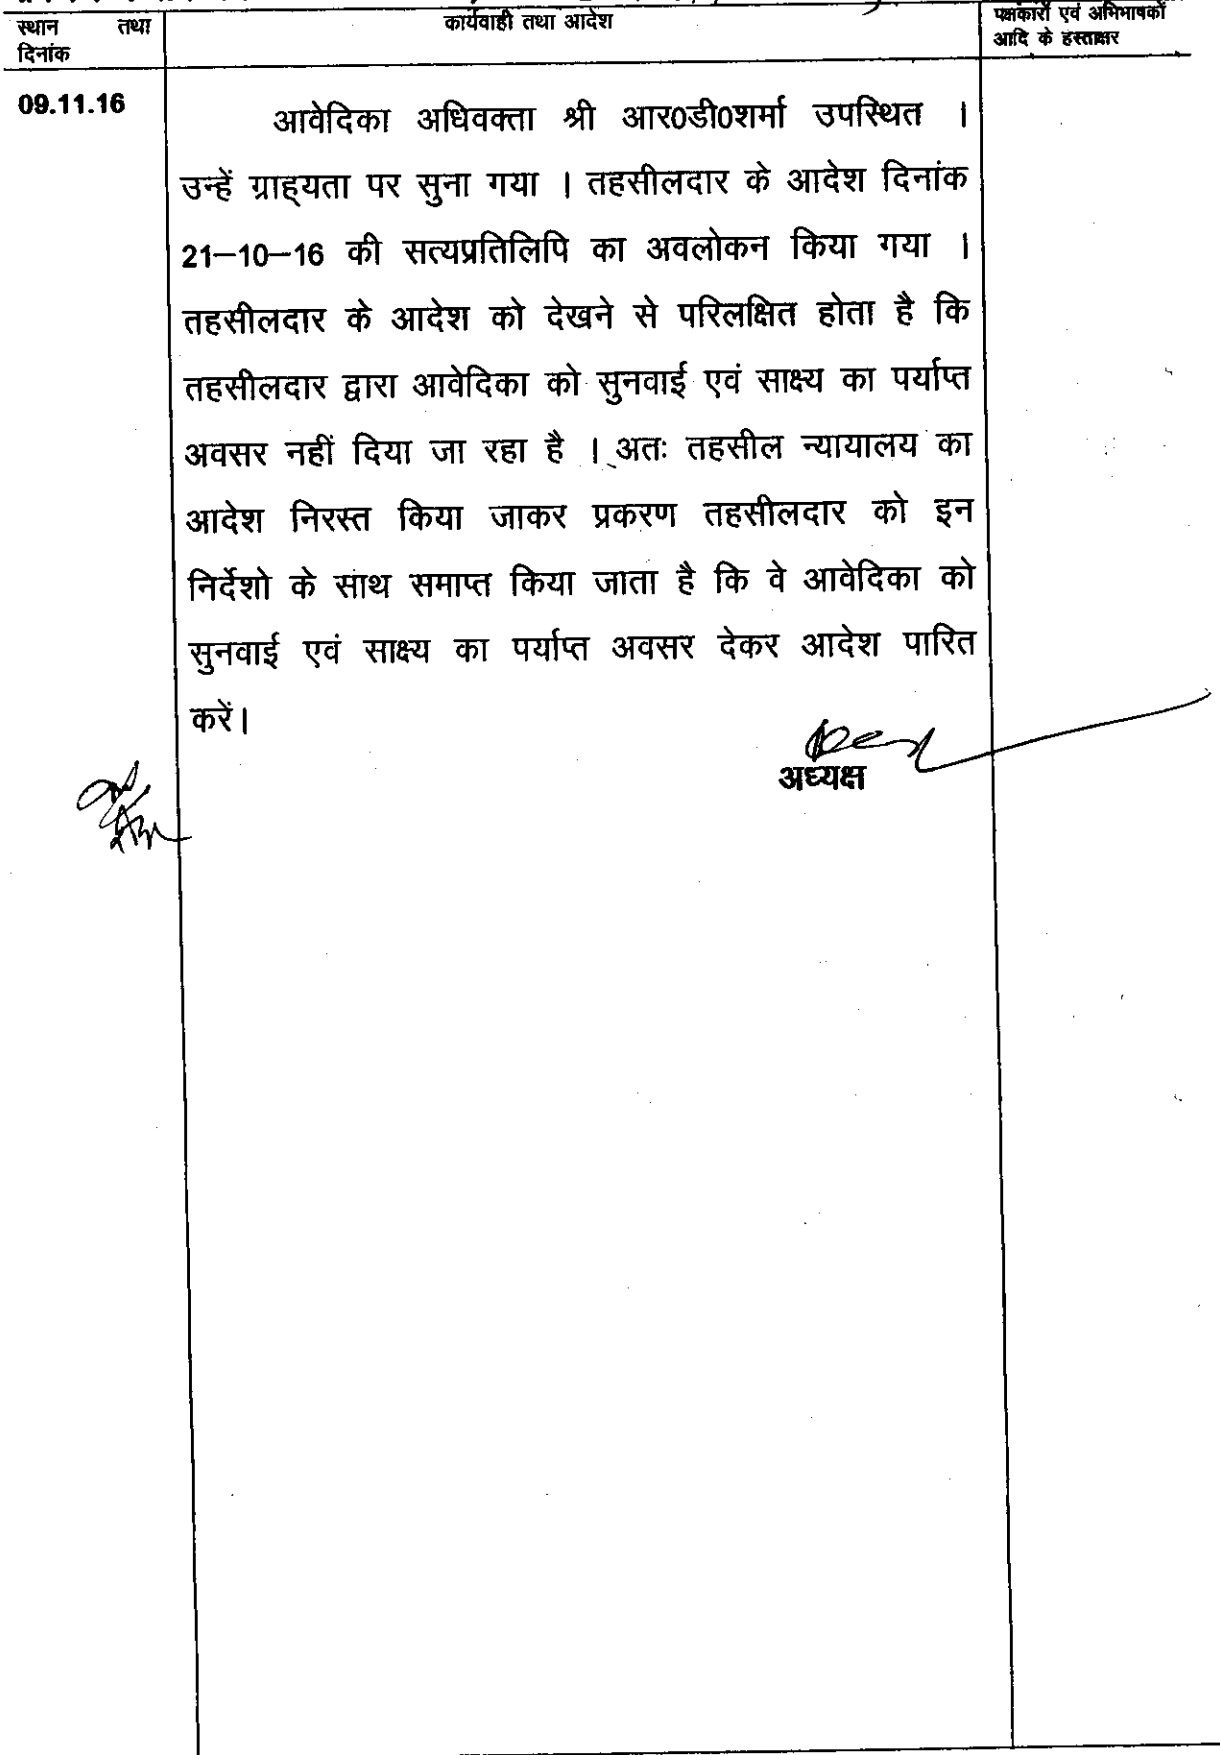 स्थान तथा
दिनांक
कार्यवाही तथा आदेश
पक्षकारों एवं अभिभाषकों
आदि के हस्ताक्षर
09.11.16
आवेदिका अधिवक्ता श्री आर0डी0शर्मा उपस्थित ।
उन्हें ग्राह्यता पर सुना गया । तहसीलदार के आदेश दिनांक
21–10–16 की सत्यप्रतिलिपि का अवलोकन किया गया ।
तहसीलदार के आदेश को देखने से परिलक्षित होता है कि
तहसीलदार द्वारा आवेदिका को सुनवाई एवं साक्ष्य का पर्याप्त
अवसर नहीं दिया जा रहा है । अतः तहसील न्यायालय का
आदेश निरस्त किया जाकर प्रकरण तहसीलदार को इन
निर्देशो के साथ समाप्त किया जाता है कि वे आवेदिका को
सुनवाई एवं साक्ष्य का पर्याप्त अवसर देकर आदेश पारित
करें।
अध्यक्ष